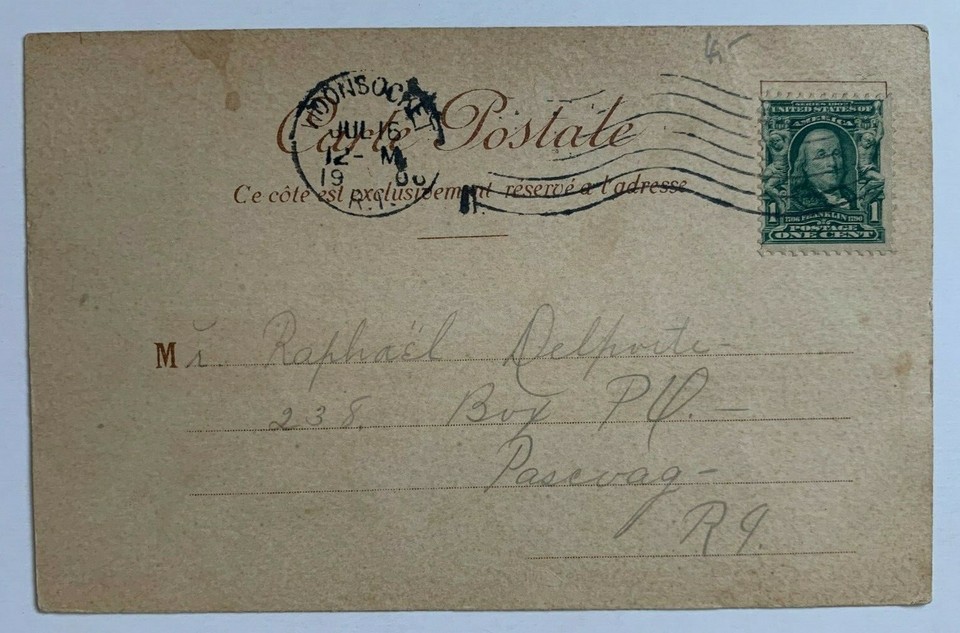 WOONSOCKET
JUL 16
12-M
R.I.
Carte Postale
Ce côté est exclusivement réservé à l'adresse
SERIES 1902
UNITED STATES OF
AMERICA
1 1706 FRANKLIN 1790 1
POSTAGE
ONE CENT
Mr. Raphaël Delporte
238. Box P.O.
Pascoag
R.I.